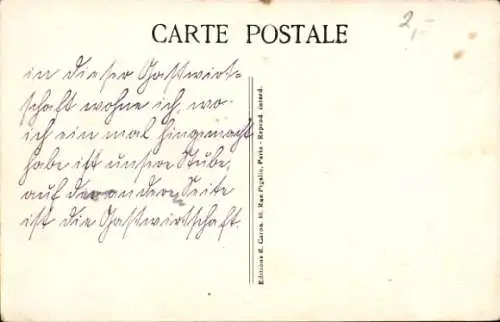 CARTE POSTALE
2,-
in dieser Gastwirt=
schaft wohne ich, wo
ich ein mal hingemacht
habe ist unsere Stube,
auf der anderen Seite
ist die Gastwirtschaft.
Editions E. Caron, 10, Rue Pigalle, Paris - Reprod. interd.